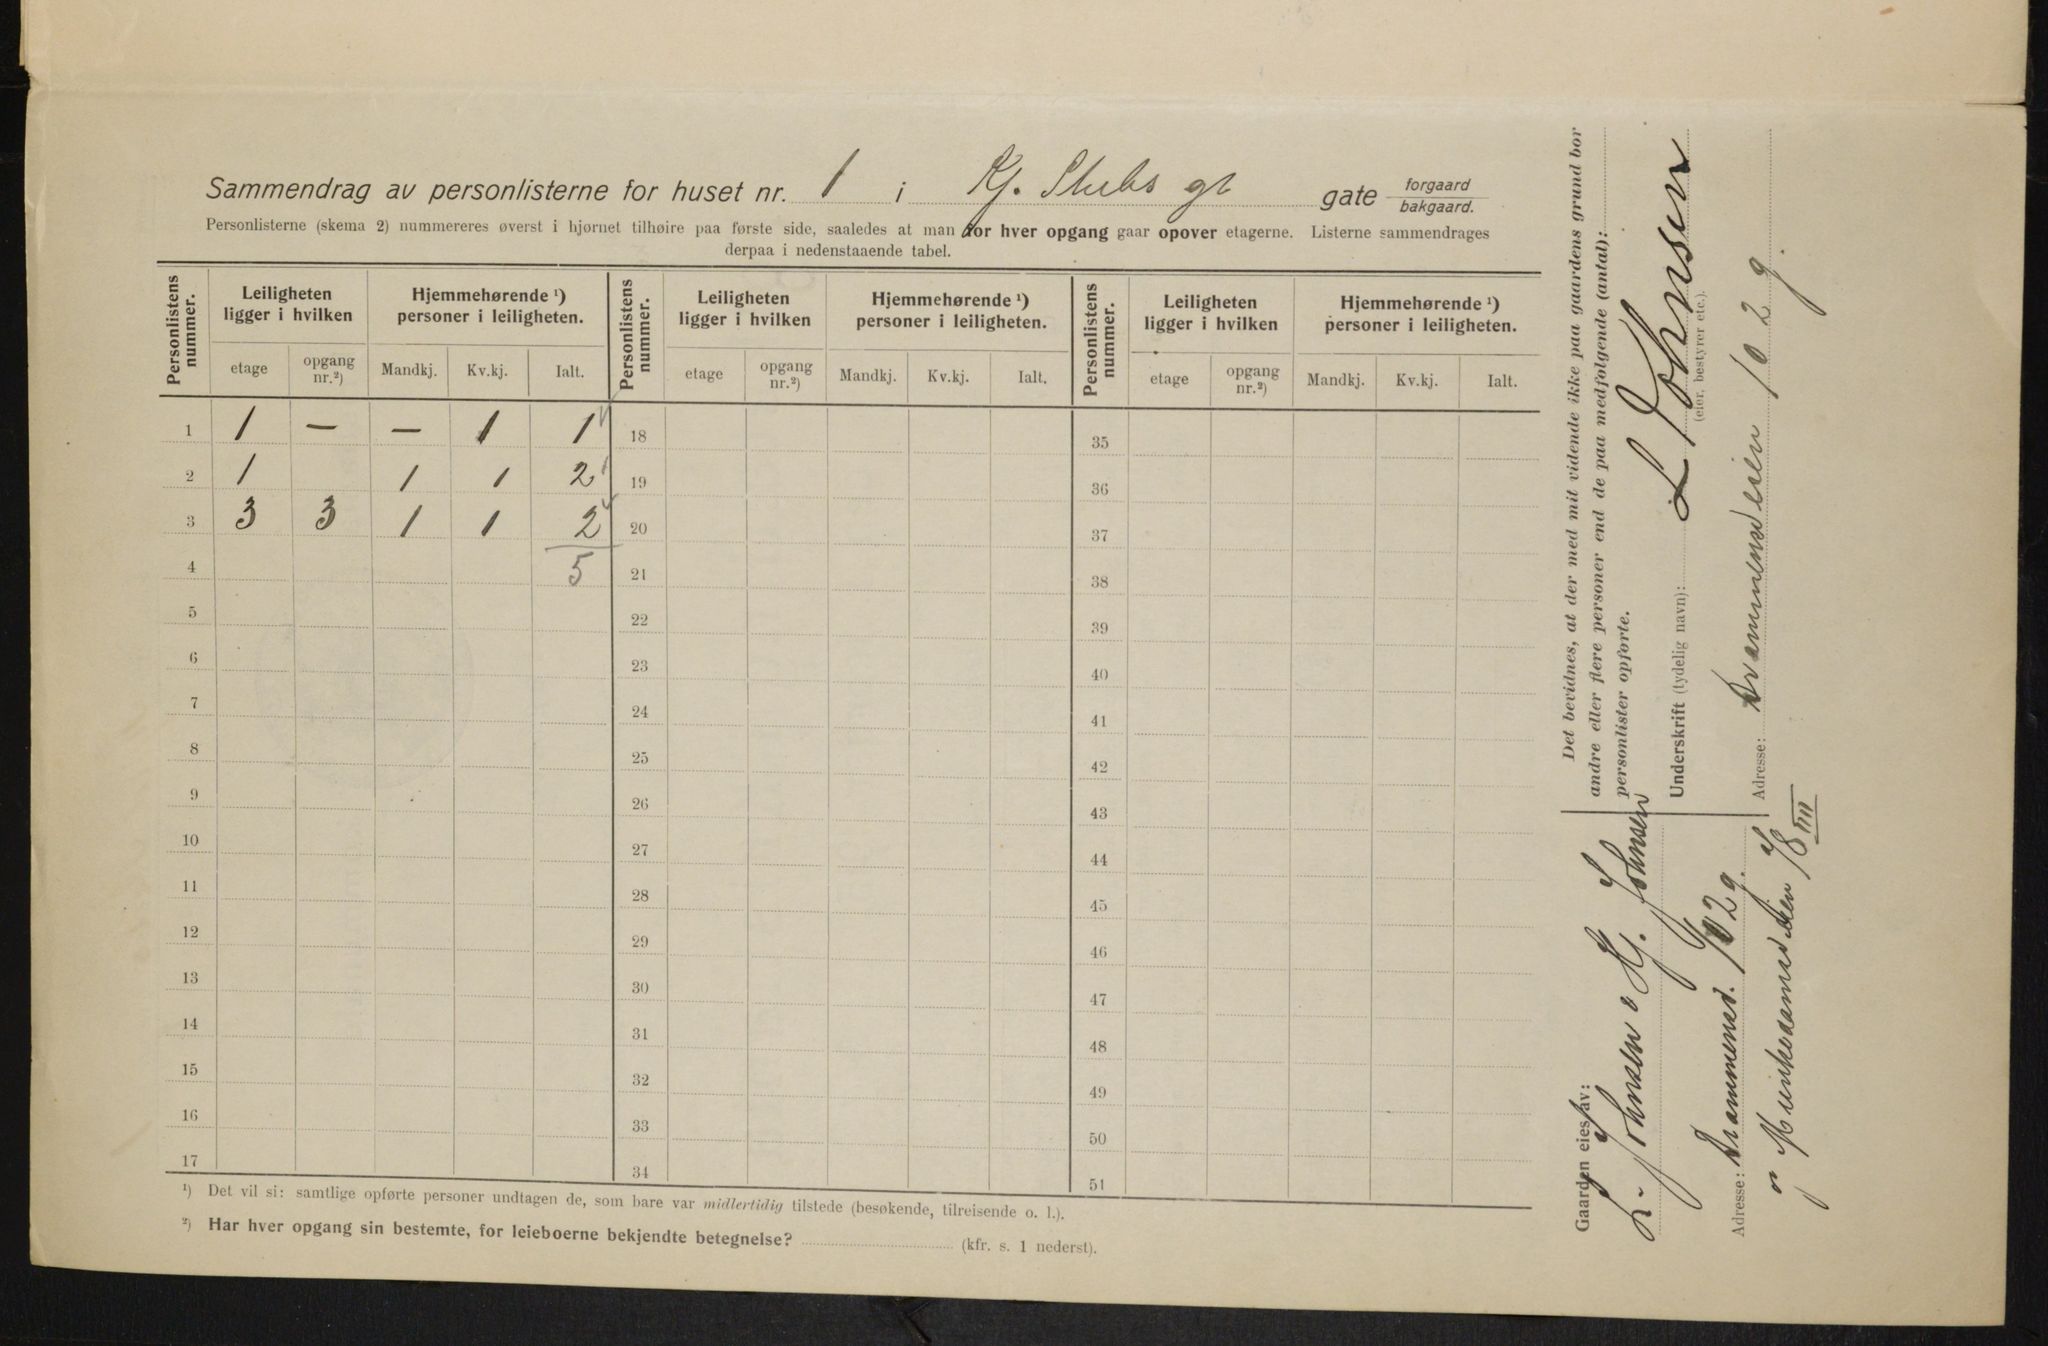 Sammendrag av personlisterne for huset nr. 1 i Kj. Stubs gt gate forgaard bakgaard.
Personlisterne (skema 2) nummereres øverst i hjørnet tilhøire paa første side, saaledes at man for hver opgang gaar opover etagerne. Listerne sammendrages
derpaa i nedenstaaende tabel.
Personlistens nummer. Leiligheten ligger i hvilken Hjemmehørende ¹) personer i leiligheten. Personlistens nummer. Leiligheten ligger i hvilken Hjemmehørende ¹) personer i leiligheten. Personlistens nummer. Leiligheten ligger i hvilken Hjemmehørende ¹) personer i leiligheten.
etage opgang nr.²) Mandkj. Kv.kj. Ialt. etage opgang nr.²) Mandkj. Kv.kj. Ialt. etage opgang nr.²) Mandkj. Kv.kj. Ialt.
1 1 — — 1 1 18 35
2 1 1 1 2 19 36
3 3 3 1 1 2 20 37
4 5 21 38
5 22 39
6 23 40
7 24 41
8 25 42
9 26 43
10 27 44
11 28 45
12 29 46
13 30 47
14 31 48
15 32 49
16 33 50
17 34 51
¹) Det vil si: samtlige opførte personer undtagen de, som bare var midlertidig tilstede (besøkende, tilreisende o. l.).
²) Har hver opgang sin bestemte, for leieboerne bekjendte betegnelse? (kfr. s. 1 nederst).
Det bevidnes, at der med mit vidende ikke paa gaardens grund bor
andre eller flere personer end de paa medfølgende (antal):
personlister opførte.
Underskrift (tydelig navn): L Johnsen
(eier, bestyrer etc.).
Adresse: Drammensveien 102 g.
Gaarden eies av:
L. Johnsen & Hj. Johnsen
Adresse: Drammensv. 102 g.
Munkedamsveien 78 III